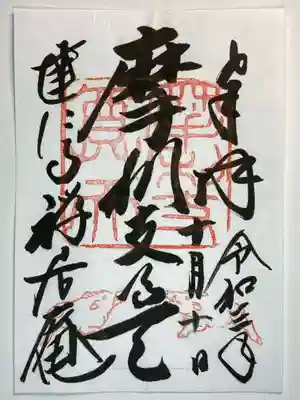 奉拝
令和三年
十月十一日
摩利支尊天
建仁寺禅居庵